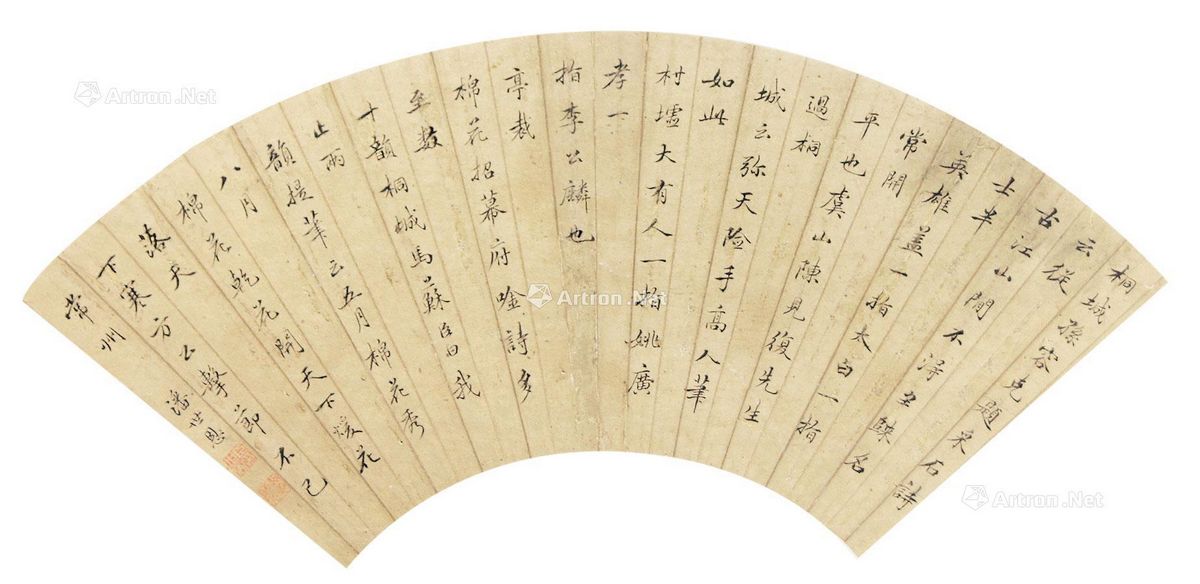 桐城孫容克題采石詩
云從
古江山閒不淂半歸名
士半
英雄蓋一指太白一指
常開
平也虞山陳見復先生
過桐
城云弥天险手高人筆
如此
村墟大有人一指姚廣
孝一
指李公麟也
亭裁
棉花招幕府唫詩多
至数
十韻桐城馬蘇臣曰我
止兩
韻提筆云五月棉花秀
八月
棉花乾花開天下煖花
落天
下寒方公擊節不已
常州
潘世恩
Artron.Net
Artron.Net
Artron.Net